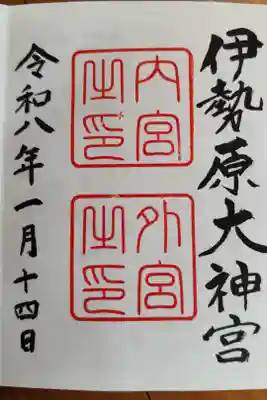 伊勢原大神宮
内宮之印
外宮之印
令和八年一月十四日